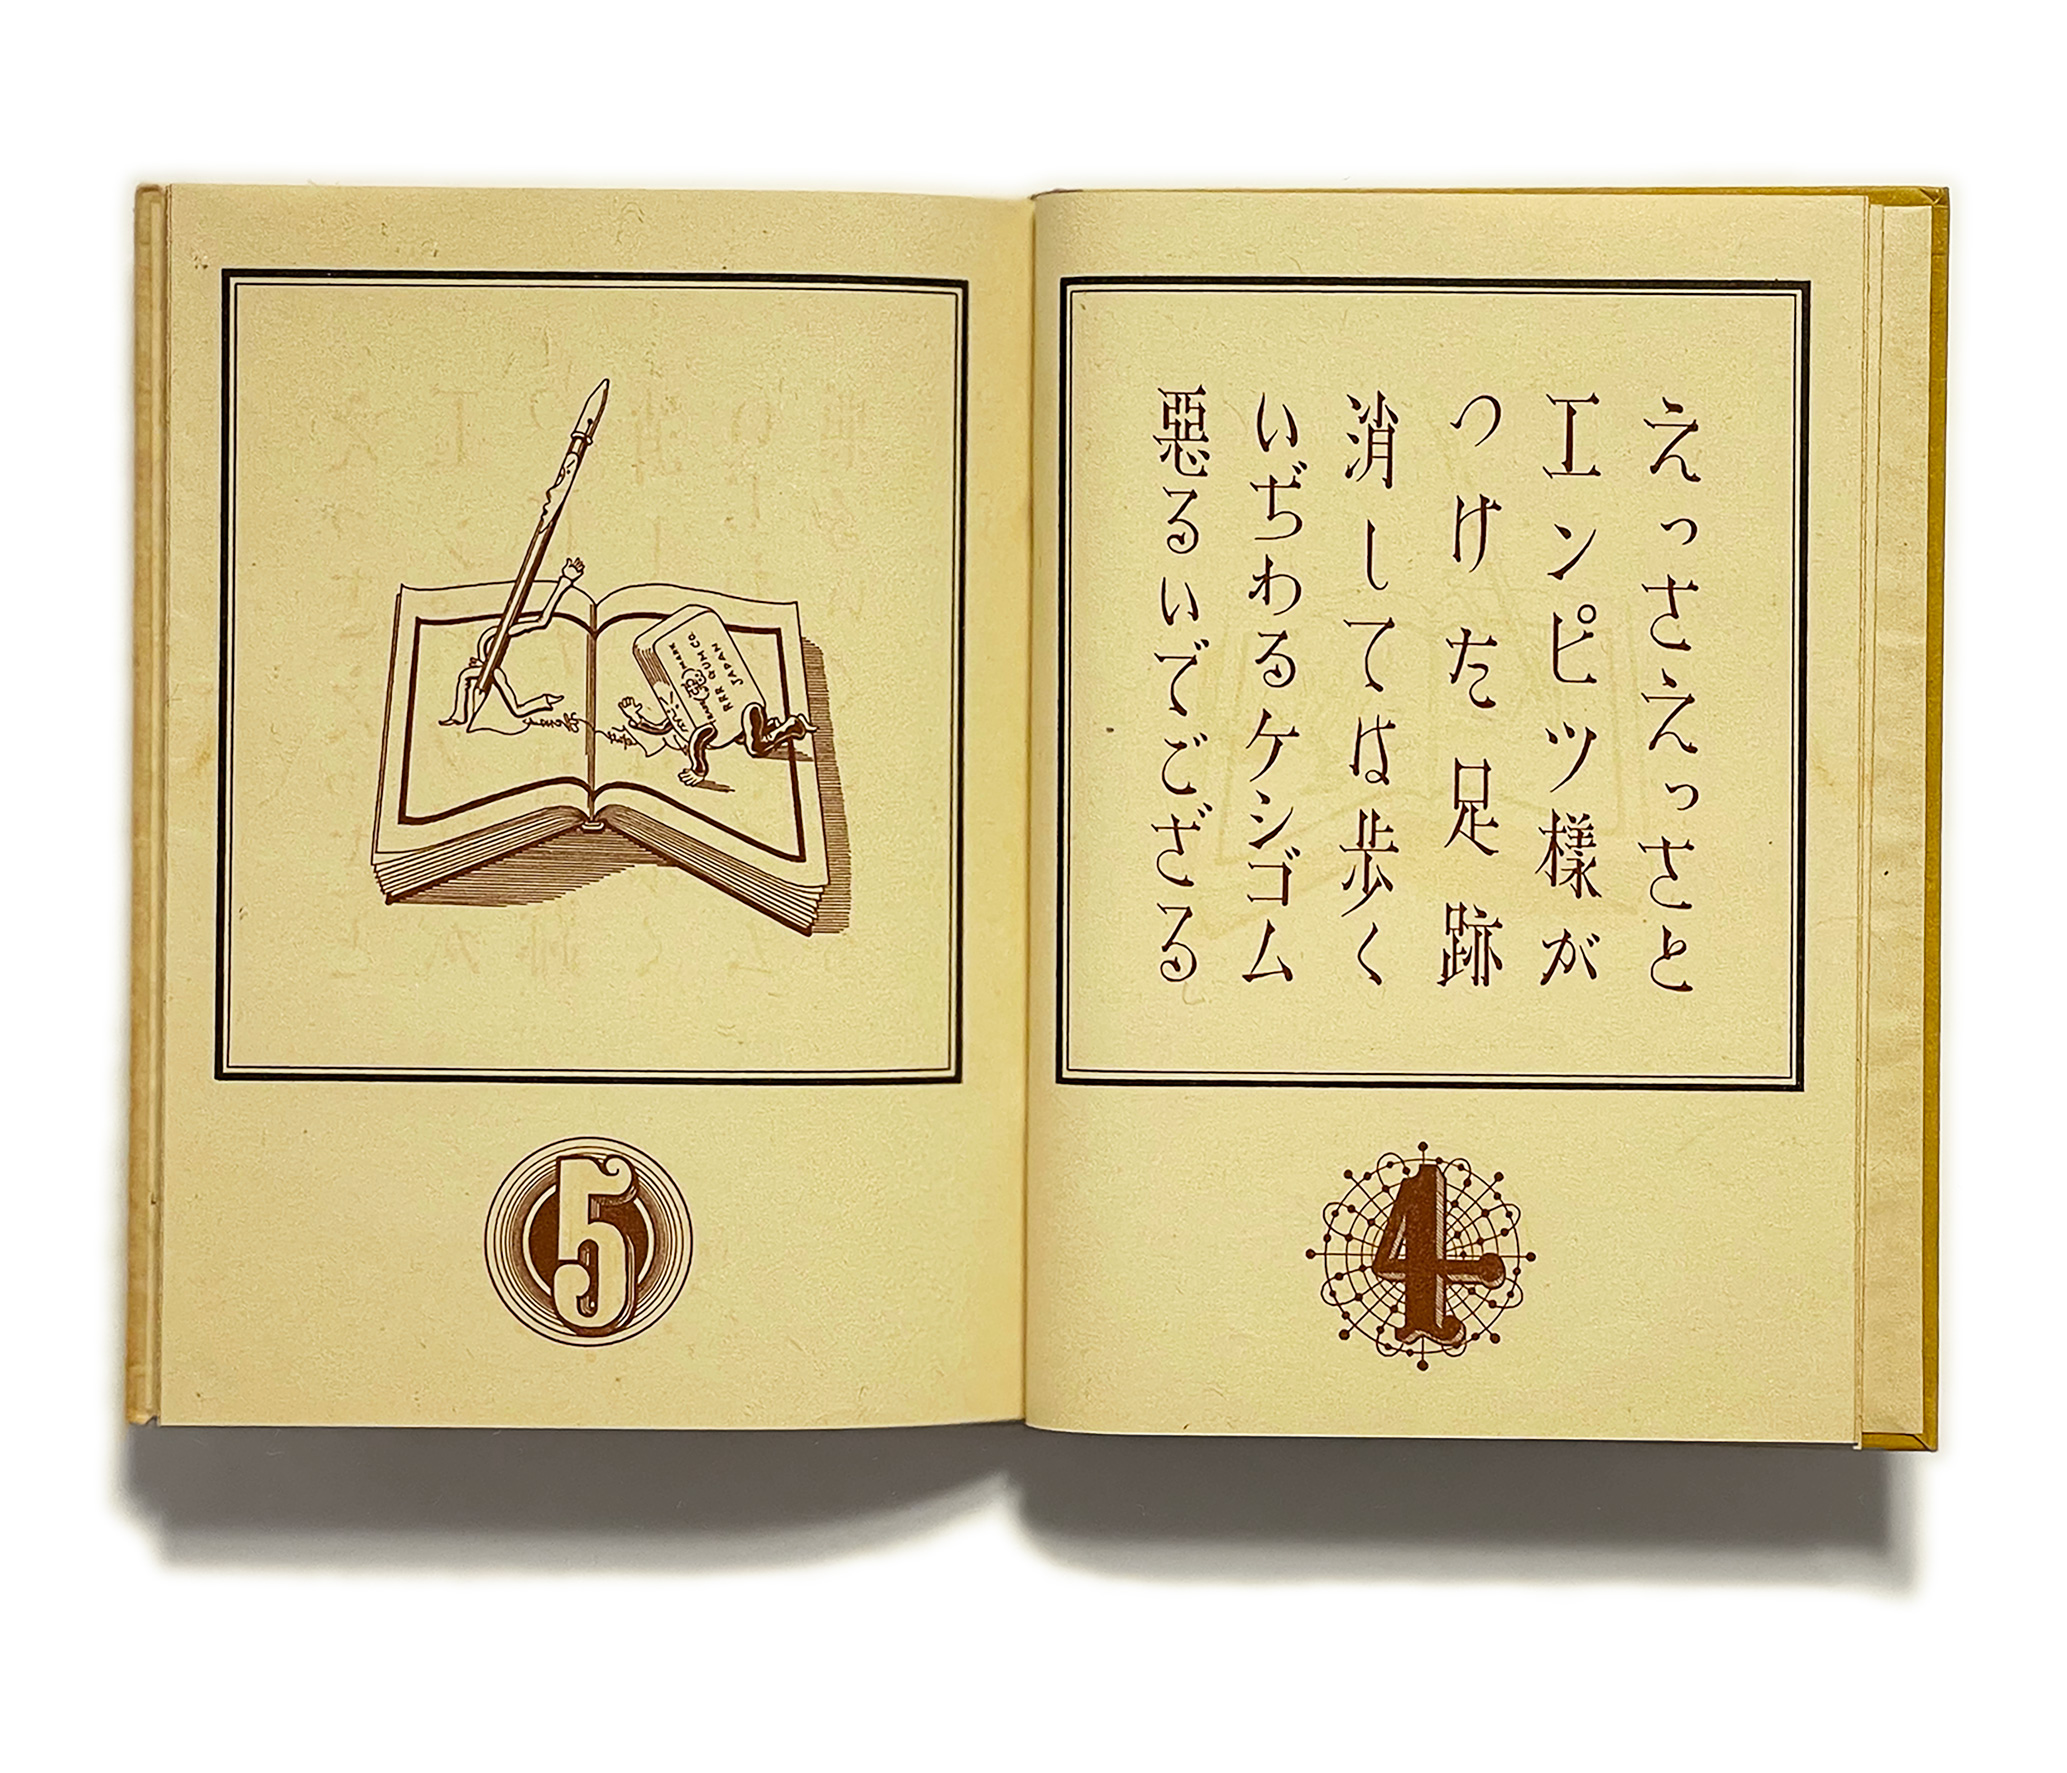 えっさえっさと
エンピツ様が
つけた足跡
消しては歩く
いぢわるケシゴム
惡るいでござる
4
MARK
RRR GUM CO.
JAPAN
5